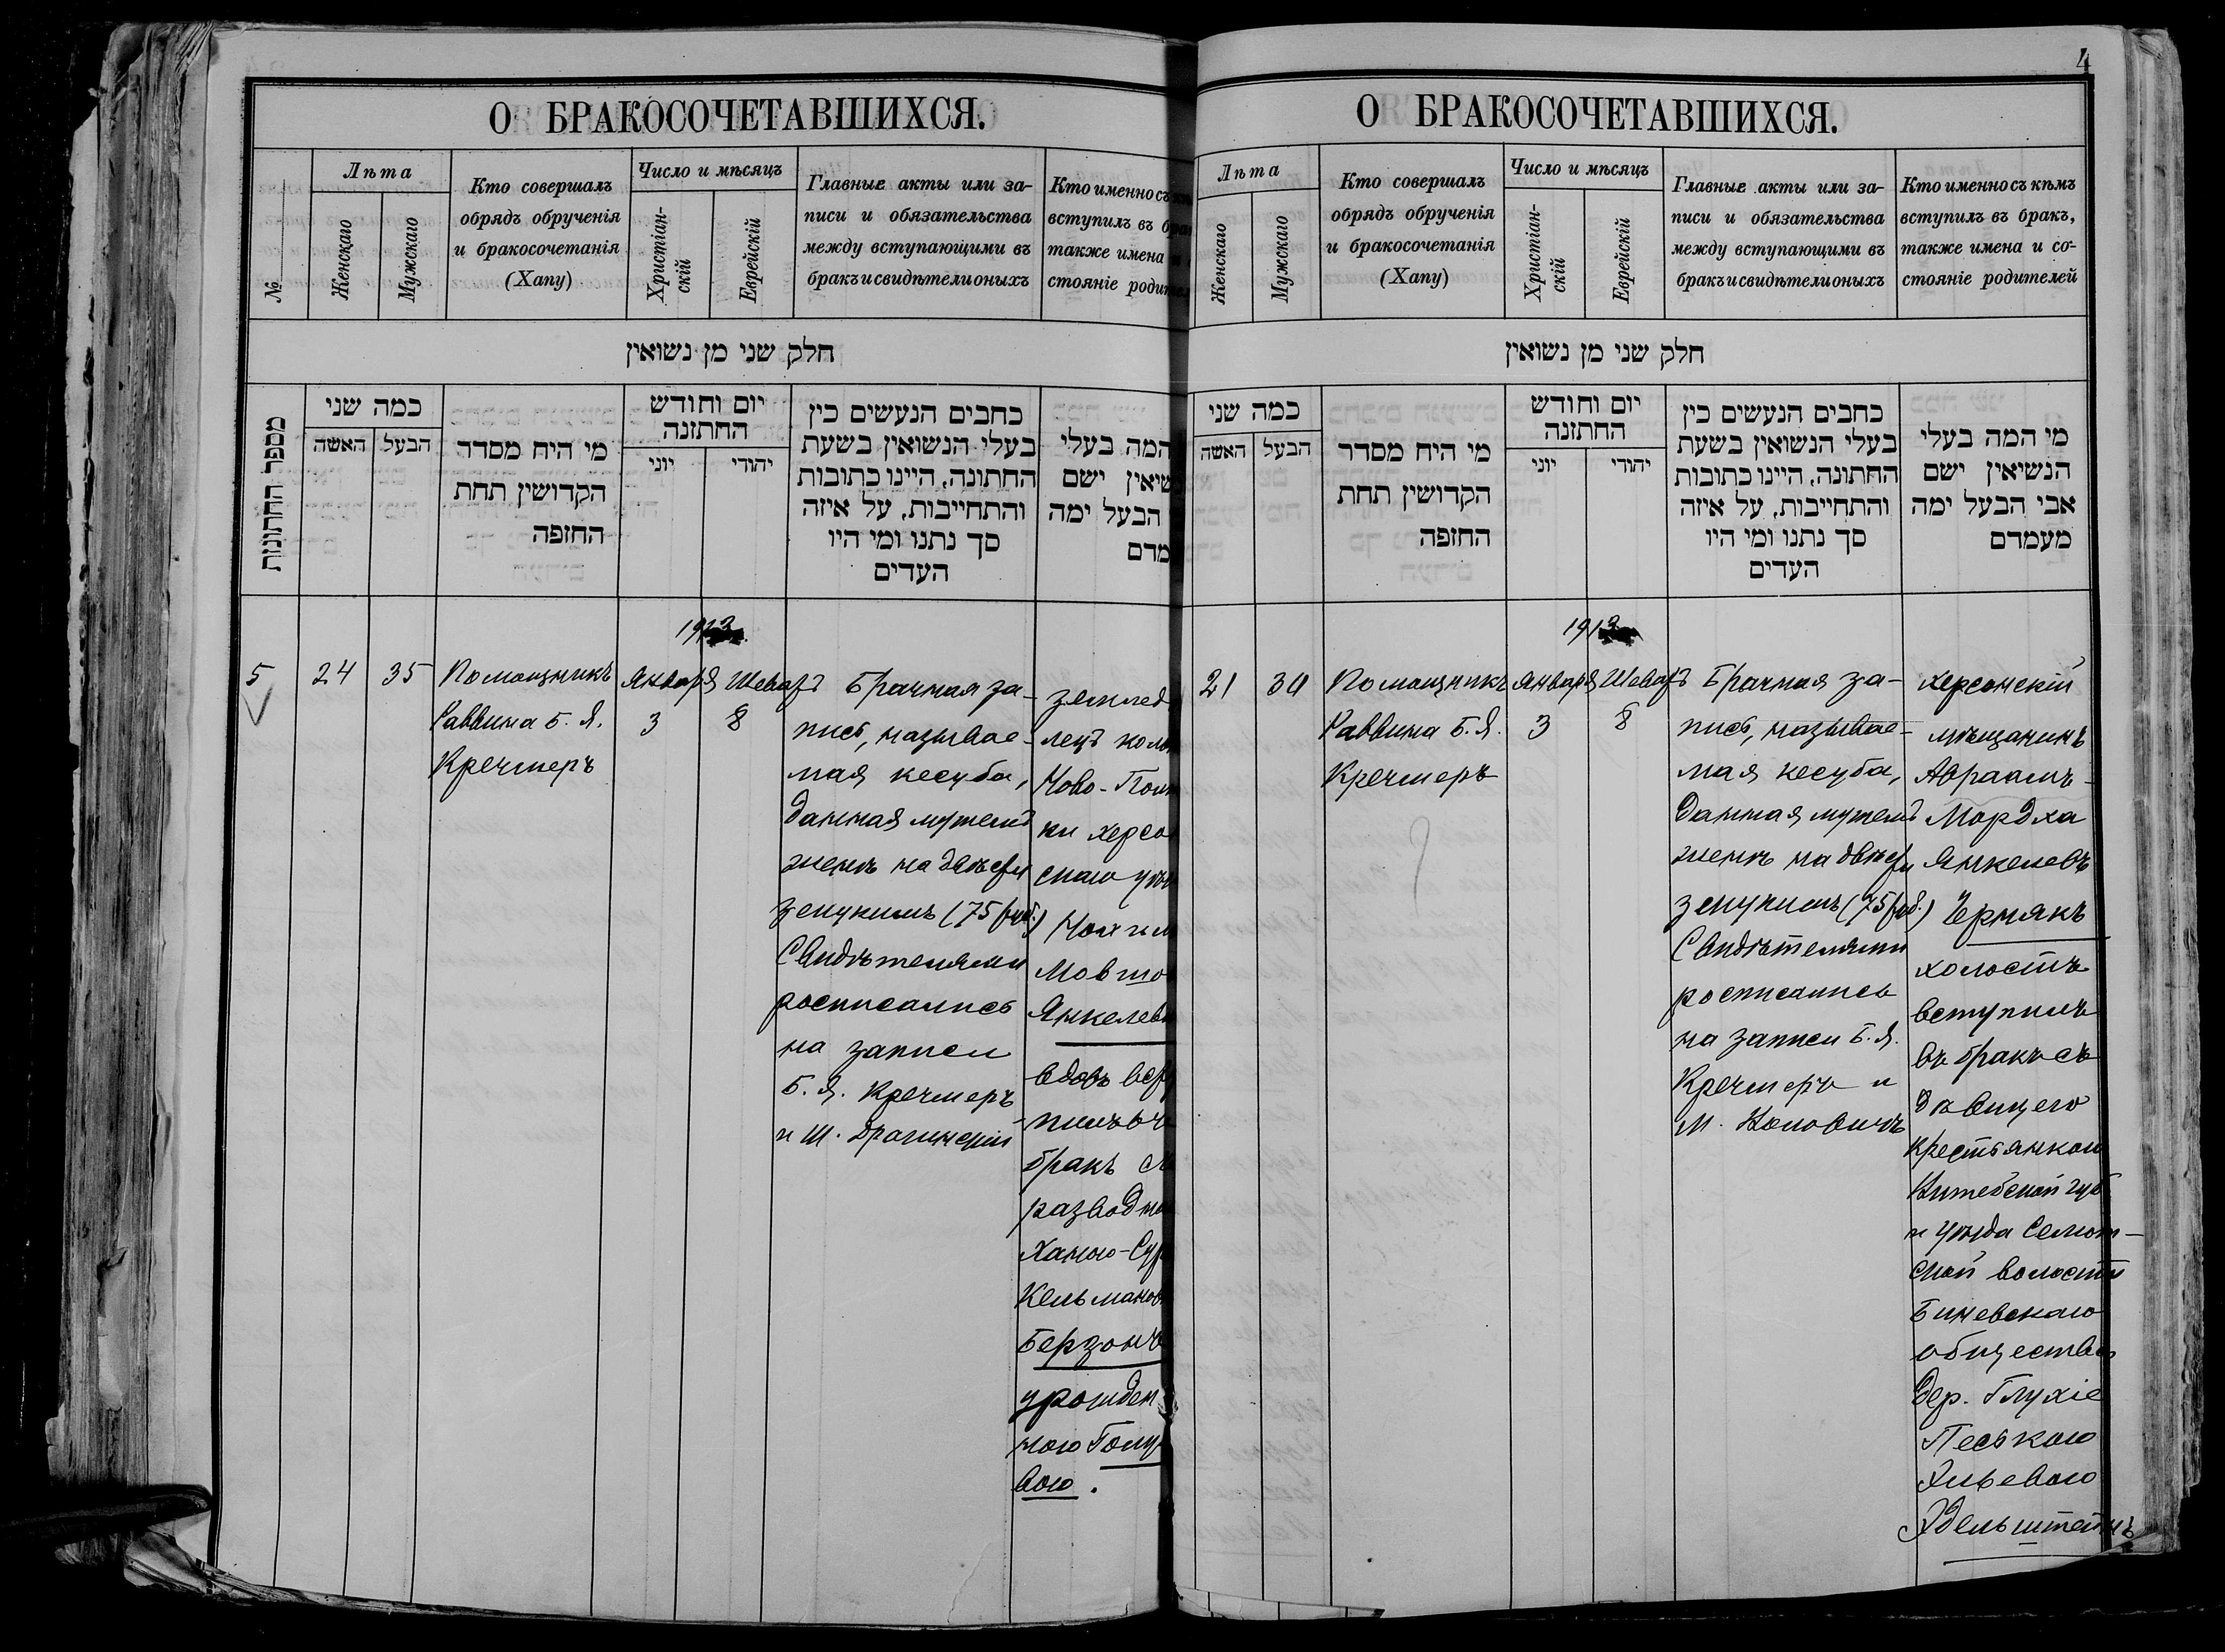 О БРАКОСОЧЕТАВШИХСЯ.
№
Лѣта
Женскаго
Мужскаго
Кто совершалъ
обрядъ обрученія
и бракосочетанія
(Хапу)
Число и мѣсяцъ
Христіан-
скій
Еврейскій
Главные акты или за-
писи и обязательства
между вступающими въ
бракъ и свидѣтели оныхъ
Кто именно съ
вступилъ въ
также имена
стояніе
חלק שני מן נשואין
מספר החתונות
כמה שני
האשה
הבעל
מי היח מסדר
הקדושין תחת
החזפה
יום וחודש
החתזנה
יוני
יהודי
כחבים הנעשים כין
בעלי הנשואין בשעת
החתונה, היינו כתובות
והתחייבות, על איזה
סך נתנו ומי היו
העדים
המה בעלי
שיאין ישם
הבעל ימה
מדם
1913
5
24
35
Помощникъ
Раввина Б. Я.
Кречмеръ
Января
3
Шеватъ
8
Брачная за-
пись, называе-
мая кесуба,
данная мужемъ
женѣ на двѣсти
зецукимъ (75 руб.)
Свидѣтелями
росписались
на записи
Б. Я. Кречмеръ
и Ш. Драгинскій
землед
лецъ коло
Ново-Пол
ки херсо
скаго уѣ
Нохим
Мовшо
Янкелев
вдовъ вст
пилъ въ
бракъ съ
разводно
Ханою-Сур
Кельманов
Берзонъ
урожден
ною Голу
вою.
4
О БРАКОСОЧЕТАВШИХСЯ.
Лѣта
Женскаго
Мужскаго
Кто совершалъ
обрядъ обрученія
и бракосочетанія
(Хапу)
Число и мѣсяцъ
Христіан-
скій
Еврейскій
Главные акты или за-
писи и обязательства
между вступающими въ
бракъ и свидѣтели оныхъ
Кто именно съ кѣмъ
вступилъ въ бракъ,
также имена и со-
стояніе родителей
חלק שני מן נשואין
כמה שני
האשה
הבעל
מי היח מסדר
הקדושין תחת
החזפה
יום וחודש
החתזנה
יוני
יהודי
כחבים הנעשים כין
בעלי הנשואין בשעת
החתונה, היינו כתובות
והתחייבות, על איזה
סך נתנו ומי היו
העדים
מי המה בעלי
הנשיאין ישם
אבי הבעל ימה
מעמדם
1913
21
30
Помощникъ
Раввина Б. Я.
Кречмеръ
Января
3
Шеватъ
8
Брачная за-
пись, называе-
мая кесуба,
данная мужемъ
женѣ на двѣсти
зецукимъ (75 руб.)
Свидѣтелями
росписались
на записи Б. Я.
Кречмеръ и
М. Коповичъ
херсонскій
мѣщанинъ
Авраамъ-
Мордха
Янкелевъ
Чернякъ
холостъ
вступилъ
въ бракъ съ
дѣвицею
крестьянкою
Витебской губ.
и уѣзда
ской волости
общества
дер. Глухіе
Пеською
Хильевою
Эдельштейнъ